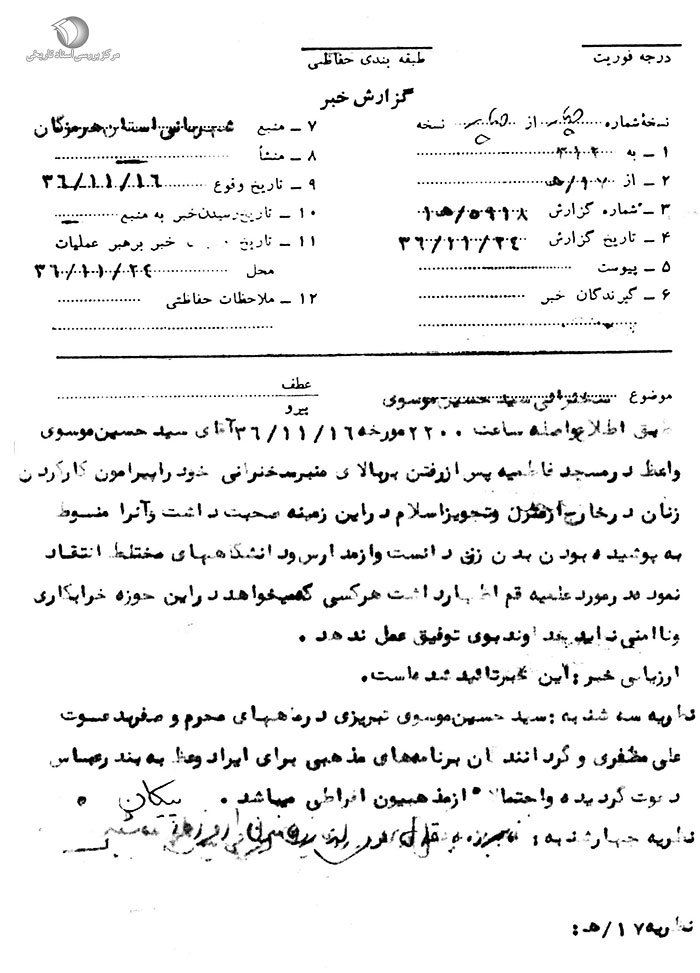 مرکز بررسی اسناد تاریخی
درجه فوریت
طبقه بندی حفاظتی
گزارش خبر
نسخهٔ شماره از نسخه
۱ ـ به ۳۱۲
۲ ـ از ۱۷/هـ
۳ ـ شماره گزارش ۵۹۱۸/هـ۱
۴ ـ تاریخ گزارش ۳۶/۱۱/۲۴
۵ ـ پیوست
۶ ـ گیرندگان خبر
۷ ـ منبع شهربانی استان هرمزگان
۸ ـ منشأ
۹ ـ تاریخ وقوع ۳۶/۱۱/۱۶
۱۰ ـ تاریخ رسیدن خبر به منبع
۱۱ ـ تاریخ خبر برهبر عملیات
محل ۳۶/۱۱/۲۴
۱۲ ـ ملاحظات حفاظتی
موضوع سخنرانی سید حسین موسوی
عطف
پیرو
طبق اطلاع واصله ساعت ۲۲۰۰ مورخه ۳۶/۱۱/۱۶ آقای سید حسین موسوی
واعظ در مسجد فاطمیه پس از رفتن بر بالای منبر سخنرانی خود را پیرامون کار کردن
زنان در خارج از منزل و تجویز اسلام در این زمینه صحبت داشت و آنرا منسوط
به پوشیده بودن بدن زن دانست و از مدارس و دانشگاههای مختلط انتقاد
نمود در مورد علمیه قم اظهار داشت هر کسی که میخواهد در این حوزه خرابکاری
و ناامنی نماید خداوند بوی توفیق عمل ندهد .
ارزیابی خبر : این خبر تائید شده است.
نظریه سه شنبه : سید حسین موسوی تبریزی در ماههای محرم و صفر بدعوت
علی مظفری و گردانندگان برنامه‌های مذهبی برای ایراد وعظ به بندرعباس
دعوت گردیده و احتمالاً از مذهبیون افراطی میباشد . پیکان .
نظریه چهارشنبه :
نظریه ۱۷/هـ :